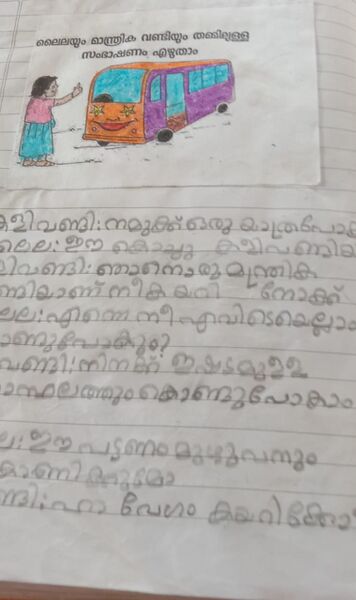 ലൈലയും മാന്ത്രിക വണ്ടിയും തമ്മിലുള്ള
സംഭാഷണം എഴുതാം
കളിവണ്ടി: നമുക്ക് ഒരു യാത്രപോക
ലൈല: ഈ കൊച്ചു കളിവണ്ടിയ
ളിവണ്ടി: ഞാനൊരു മന്ത്രിക
ണ്ടിയാണ് നീ കയറി നോക്ക്
ലൈല: എന്നെ നീ എവിടെയെല്ലാം
ണ്ടുപോകും?
വണ്ടി: നിനക്ക് ഇഷ്ടമുള്ള
സ്ഥലത്തും കൊണ്ടുപോകാം
ല: ഈ പട്ടണം മുഴുവനും
കാണി
ണ്ടി: ഹാ വേഗം കയറിക്കോ